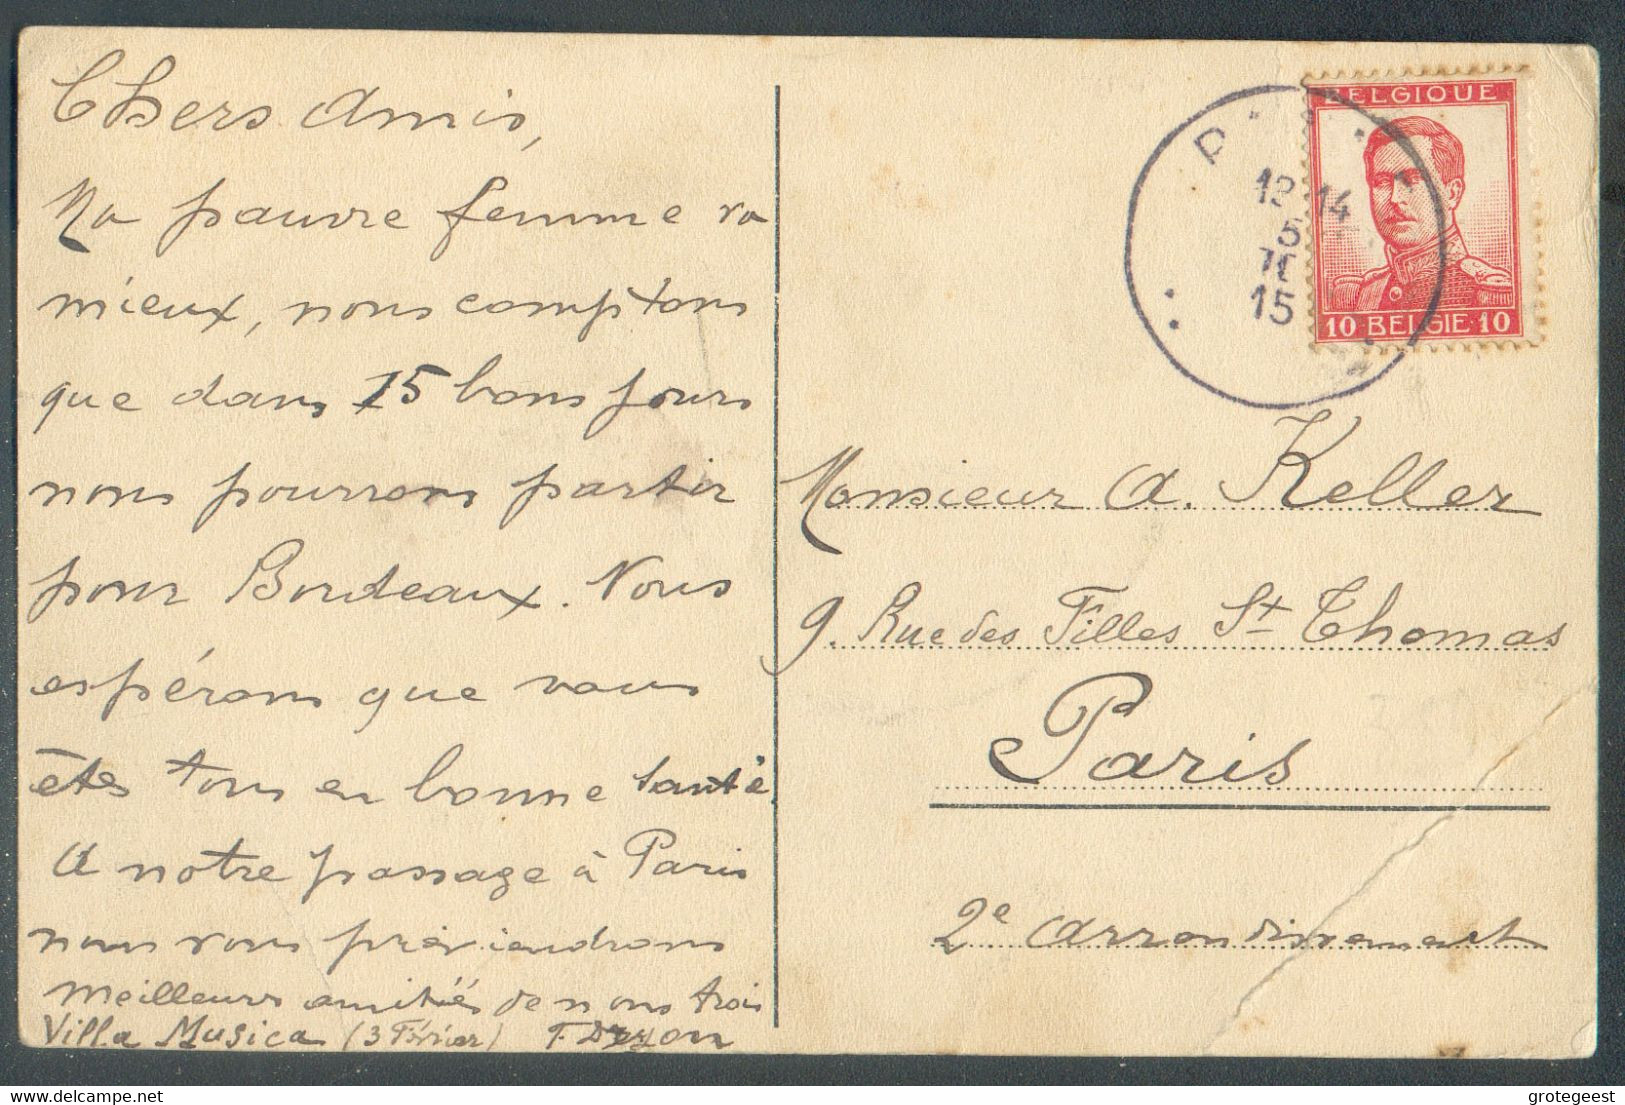 Chers Amis,
Ma pauvre femme va
mieux, nous comptons
que dans 15 bons jours
nous pourrons partir
pour Bordeaux. Nous
espérons que vous
êtes tous en bonne santé
A notre passage à Paris
nous vous préviendrons
Meilleurs amitiés de nous trois
Villa Musica (3 Février)
BELGIQUE
10 BELGIE 10
12-14
5
II
15
Monsieur A. Keller
9. Rue des Filles St Thomas
Paris
2e Arrondissement
www.delcampe.net
grotegeest